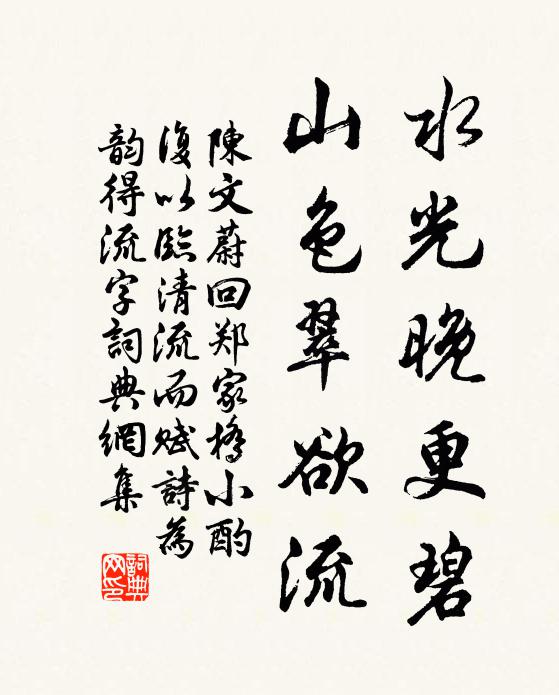 水光晚更碧
山色翠欲流
陳文蔚回郑家橋小酌
復以臨清流而赋詩為
韵得流字詞典網集
詞典网印